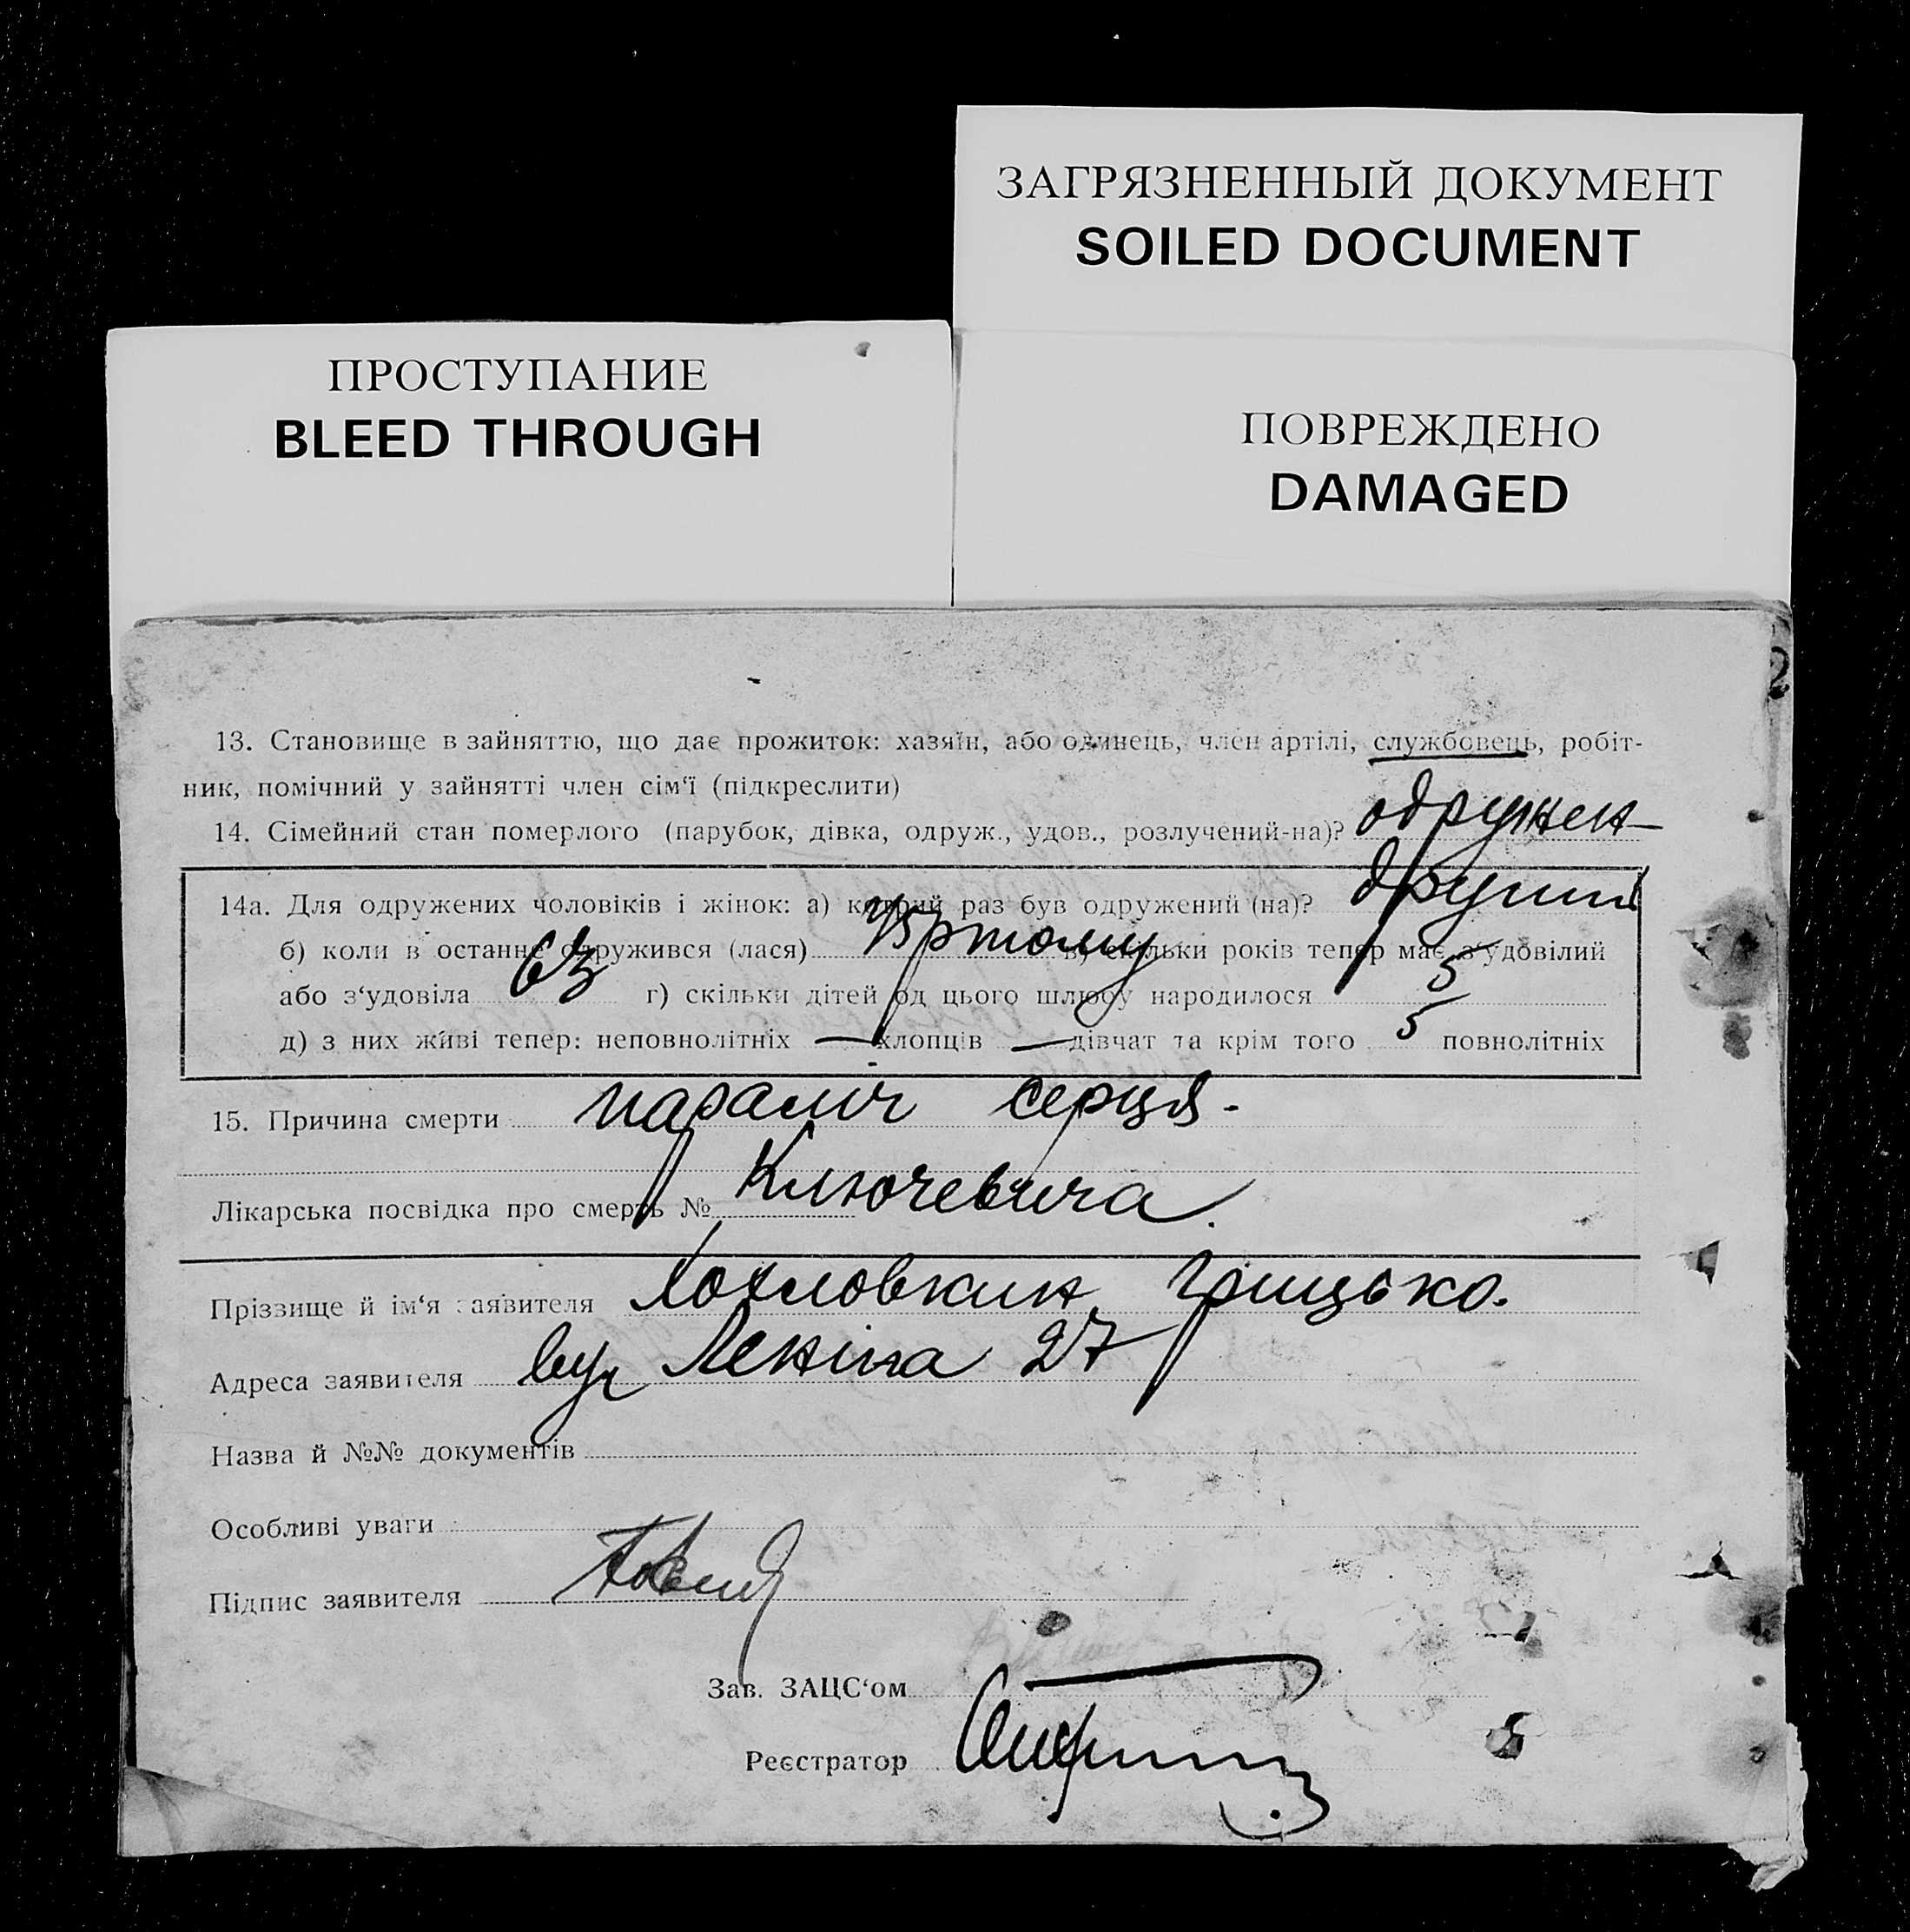 ЗАГРЯЗНЕННЫЙ ДОКУМЕНТ
SOILED DOCUMENT
ПРОСТУПАНИЕ
BLEED THROUGH
ПОВРЕЖДЕНО
DAMAGED
2
13. Становище в зайняттю, що дає прожиток: хазяїн, або одинець, член артілі, службовець, робіт-
ник, помічний у зайнятті член сім‘ї (підкреслити)
14. Сімейний стан померлого (парубок, дівка, одруж., удов., розлучений-на)? одружен
14а. Для одружених чоловіків і жінок: а) котрий раз був одружений (на)? другий
б) коли в останнє одружився (лася) в) скільки років тепер має з‘удовілий
або з‘удовіла г) скільки дітей од цього шлюбу народилося 5
д) з них живі тепер: неповнолітніх — хлопців — дівчат та крім того 5 повнолітніх
15. Причина смерти параліч серця.
Лікарська посвідка про смерть № Ключевича.
Прізвище й ім‘я заявителя Грицько.
Адреса заявителя вул Леніна 27
Назва й №№ документів
Особливі уваги
Підпис заявителя
Зав. ЗАЦС‘ом
Реєстратор